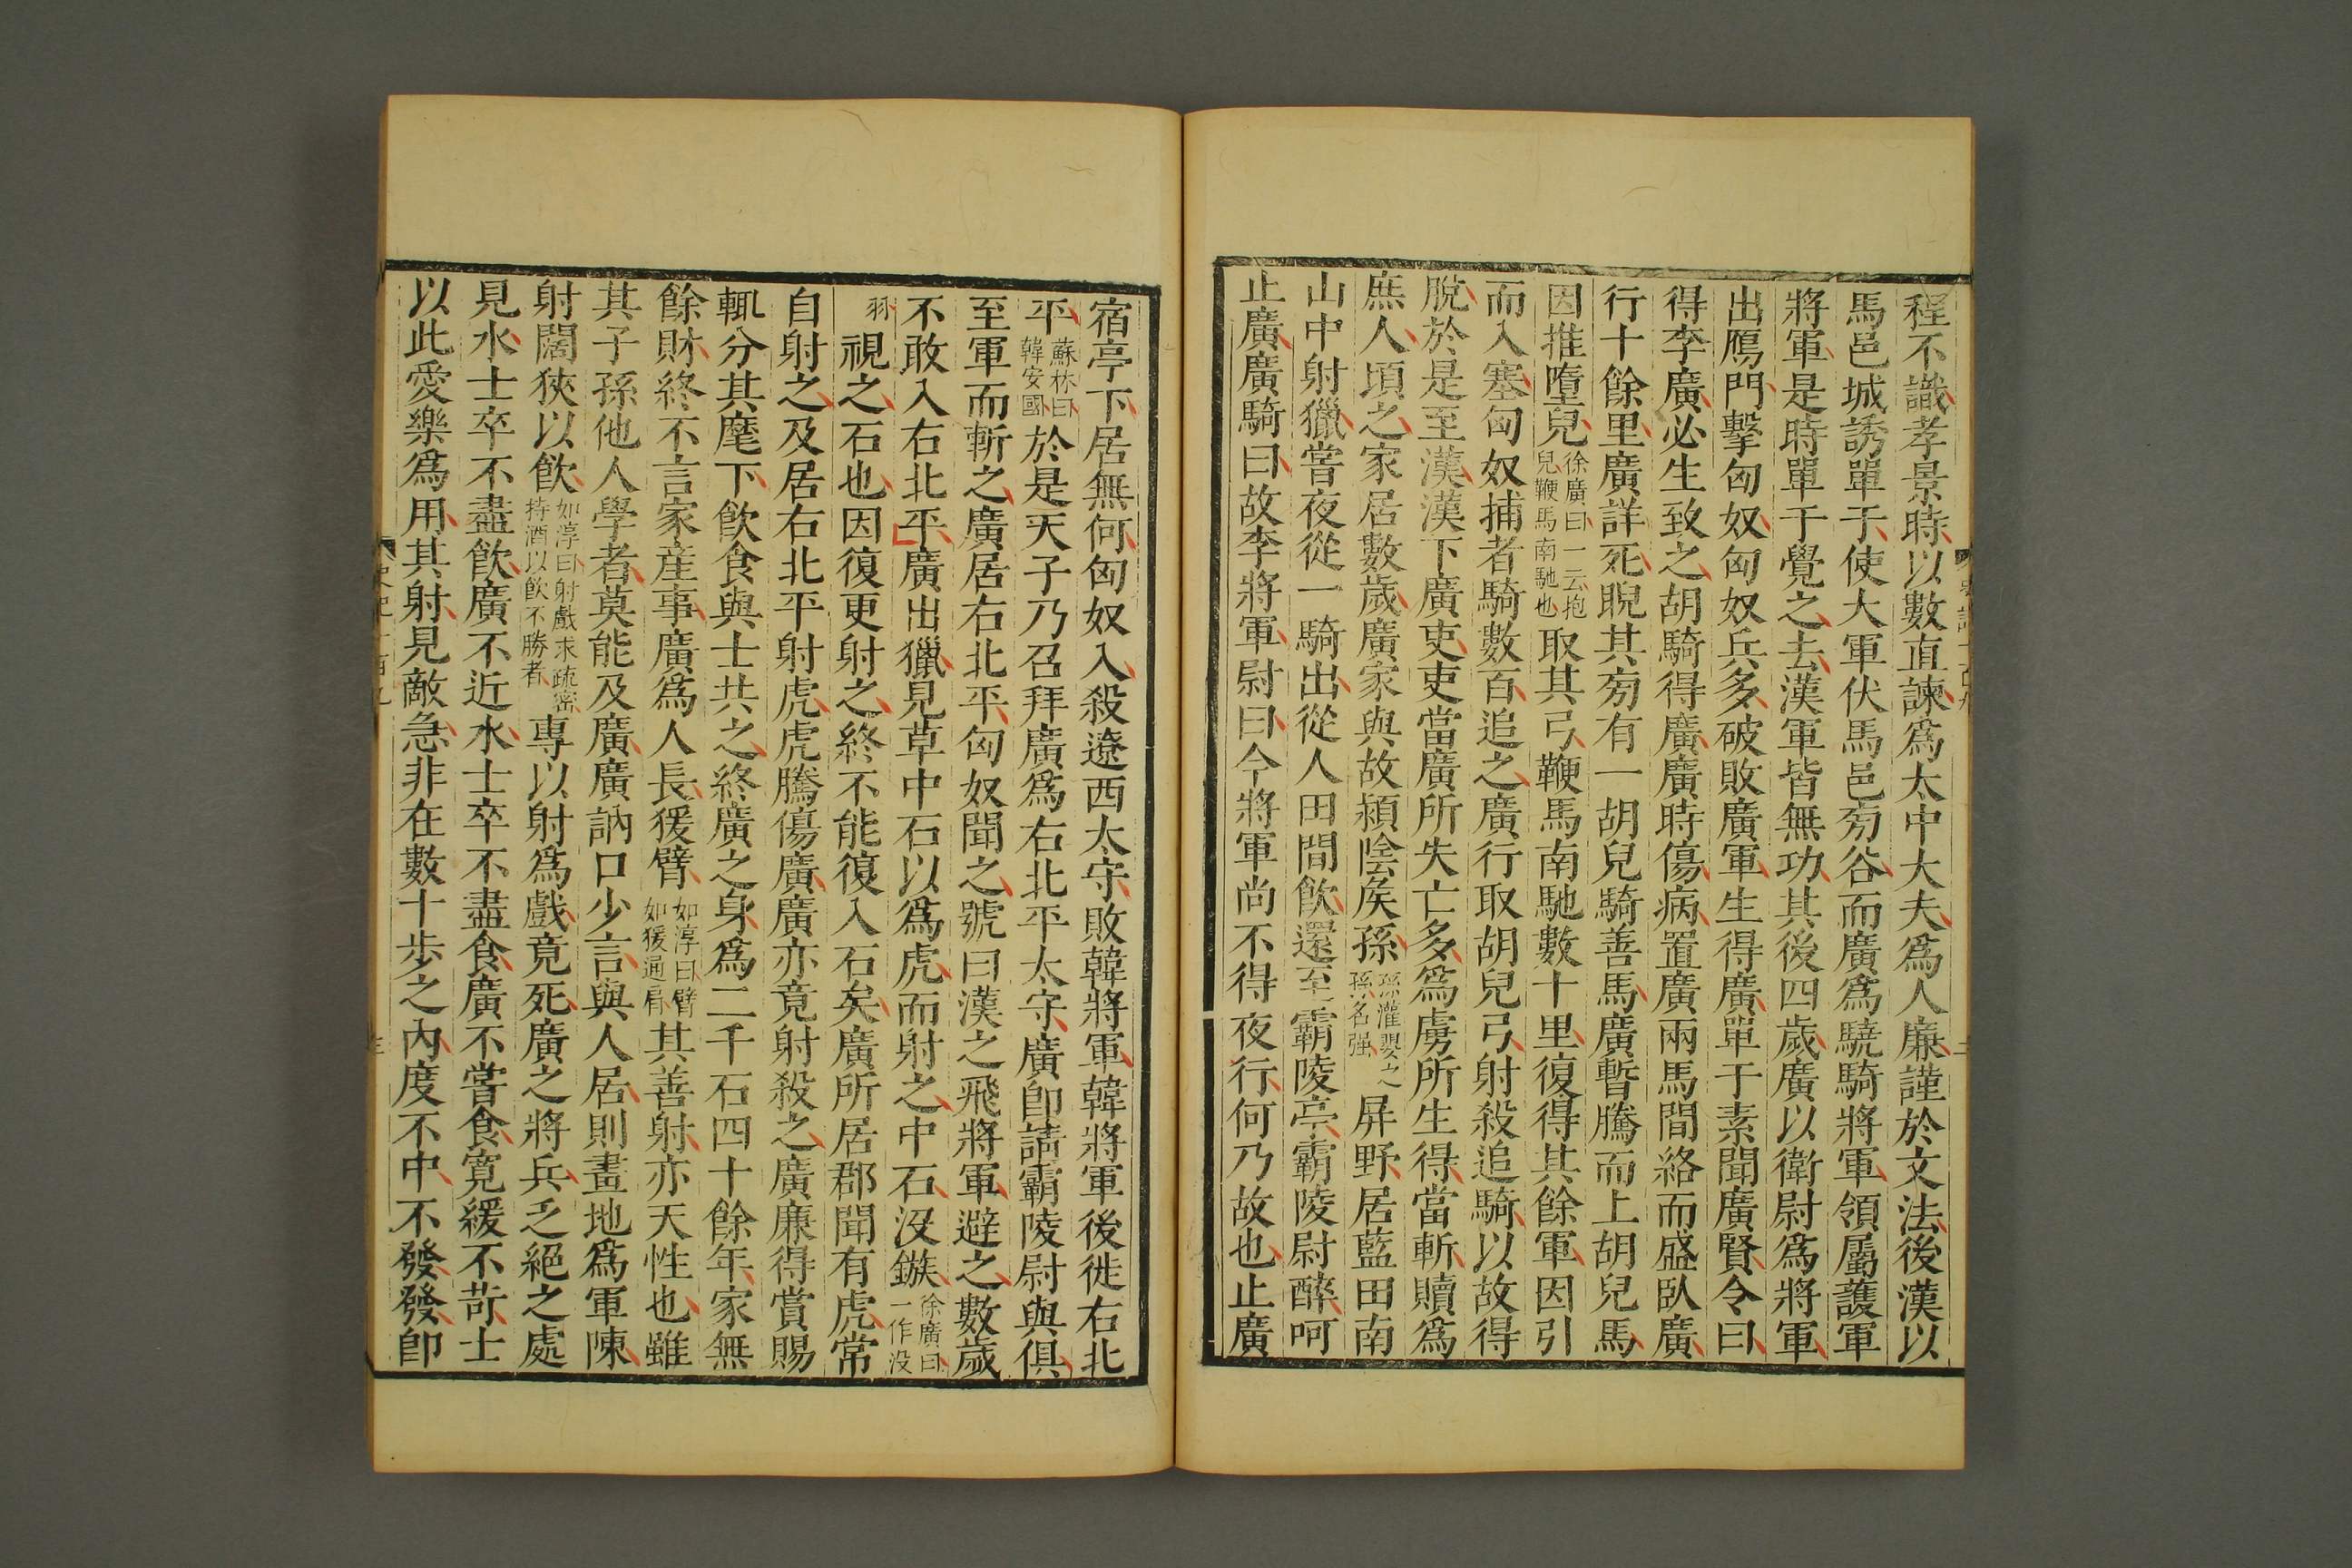 程不識孝景時以數直諫爲太中大夫爲人廉謹於文法後漢以
馬邑城誘單于使大軍伏馬邑旁谷而廣爲驍騎將軍領屬護軍
將軍是時單于覺之去漢軍皆無功其後四歲廣以衛尉爲將軍
出鴈門擊匈奴匈奴兵多破敗廣軍生得廣單于素聞廣賢令曰
得李廣必生致之胡騎得廣廣時傷病置廣兩馬間絡而盛臥廣
行十餘里廣詳死睨其旁有一胡兒騎善馬廣暫騰而上胡兒馬
因推墮兒徐廣曰一云抱兒鞭馬南馳也取其弓鞭馬南馳數十里復得其餘軍因引
而入塞匈奴捕者騎數百追之廣行取胡兒弓射殺追騎以故得
脫於是至漢漢下廣吏吏當廣所失亡多爲虜所生得當斬贖爲
庶人頃之家居數歲廣家與故潁陰矦孫孫灌嬰之孫名强屏野居藍田南
山中射獵甞夜從一騎出從人田間飲還至霸陵亭霸陵尉醉呵
止廣廣騎曰故李將軍尉曰今將軍尚不得夜行何乃故也止廣
宿亭下居無何匈奴入殺遼西太守敗韓將軍韓將軍後徙右北
平蘇林曰韓安國於是天子乃召拜廣爲右北平太守廣卽請霸陵尉與俱
至軍而斬之廣居右北平匈奴聞之號曰漢之飛將軍避之數歲
不敢入右北平廣出獵見草中石以爲虎而射之中石没鏃徐廣曰一作没
羽視之石也因復更射之終不能復入石矣廣所居郡聞有虎常
自射之及居右北平射虎虎騰傷廣廣亦竟射殺之廣廉得賞賜
輒分其麾下飲食與士共之終廣之身爲二千石四十餘年家無
餘財終不言家産事廣爲人長猨臂如淳曰臂如猨通肩其善射亦天性也雖
其子孫他人學者莫能及廣廣訥口少言與人居則畫地爲軍陳
射闊狹以飲如淳曰射戲求疏密持酒以飲不勝者專以射爲戲竟死廣之將兵乏絕之處
見水士卒不盡飲廣不近水士卒不盡食廣不嘗食寬緩不苛士
以此愛樂爲用其射見敵急非在數十步之內度不中不發發卽